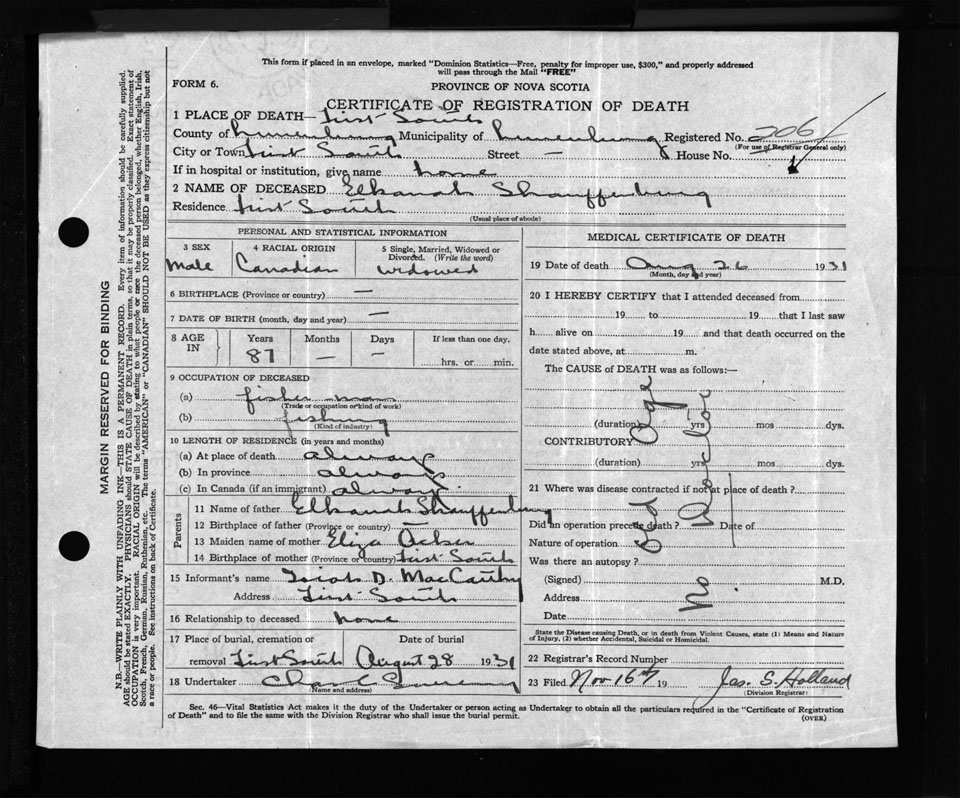 This form if placed in an envelope, marked "Dominion Statistics—Free, penalty for improper use, $300," and properly addressed
will pass through the Mail "FREE"
FORM 6.
PROVINCE OF NOVA SCOTIA
CERTIFICATE OF REGISTRATION OF DEATH
1 PLACE OF DEATH— First South
County of Lunenburg Municipality of Lunenburg Registered No. 206
(For use of Registrar General only)
City or Town First South Street — House No.
If in hospital or institution, give name home
2 NAME OF DECEASED Elkanah Shauffenburg
Residence First South
(Usual place of abode)
PERSONAL AND STATISTICAL INFORMATION
3 SEX 4 RACIAL ORIGIN 5 Single, Married, Widowed or
Divorced. (Write the word)
Male Canadian widowed
6 BIRTHPLACE (Province or country) —
7 DATE OF BIRTH (month, day and year) —
8 AGE IN Years Months Days If less than one day,
87 — — hrs. or min.
9 OCCUPATION OF DECEASED
(a) fisher man
(Trade or occupation or kind of work)
(b) fishing
(Kind of industry)
10 LENGTH OF RESIDENCE (in years and months)
(a) At place of death always
(b) In province always
(c) In Canada (if an immigrant) always
Parents
11 Name of father Elkanah Shauffenburg
12 Birthplace of father (Province or country) —
13 Maiden name of mother Eliza
14 Birthplace of mother (Province or country) First South
15 Informant's name D. MacCarthy
Address First South
16 Relationship to deceased none
17 Place of burial, cremation or Date of burial
removal First South August 28 1931
18 Undertaker Chas
(Name and address)
MEDICAL CERTIFICATE OF DEATH
19 Date of death Aug 26 1931
(Month, day and year)
20 I HEREBY CERTIFY that I attended deceased from
19 to 19 that I last saw
h alive on 19 and that death occurred on
date stated above, at m.
The CAUSE of DEATH was as follows:—
(duration) yrs mos dys.
CONTRIBUTORY
(duration) yrs mos dys.
Old Age
No Doctor
21 Where was disease contracted if not at place of death?
Did an operation precede death? Date of
Nature of operation
Was there an autopsy?
(Signed) M.D.
Address
Date
State the Disease causing Death, or in death from Violent Causes, state (1) Means and Nature
of Injury, (2) whether Accidental, Suicidal or Homicidal.
22 Registrar's Record Number
23 Filed Nov 16th 19 Jas. S. Holland
(Division Registrar)
Sec. 46—Vital Statistics Act makes it the duty of the Undertaker or person acting as Undertaker to obtain all the particulars required in the "Certificate of Registration
of Death" and to file the same with the Division Registrar who shall issue the burial permit.
(OVER)
MARGIN RESERVED FOR BINDING
N.B.—WRITE PLAINLY WITH UNFADING INK—THIS IS A PERMANENT RECORD. Every item of information should be carefully supplied.
AGE should be stated EXACTLY. PHYSICIANS should STATE CAUSE OF DEATH in plain terms, so that it may be properly classified. Exact statement of
OCCUPATION is very important. RACIAL ORIGIN will be described by stating to what people or race the deceased person belonged, whether English, Irish,
Scotch, French, German, Russian, Ruthenian, etc. The terms "AMERICAN" or "CANADIAN" SHOULD NOT BE USED as they express citizenship but not
a race or people. See instructions on back of Certificate.